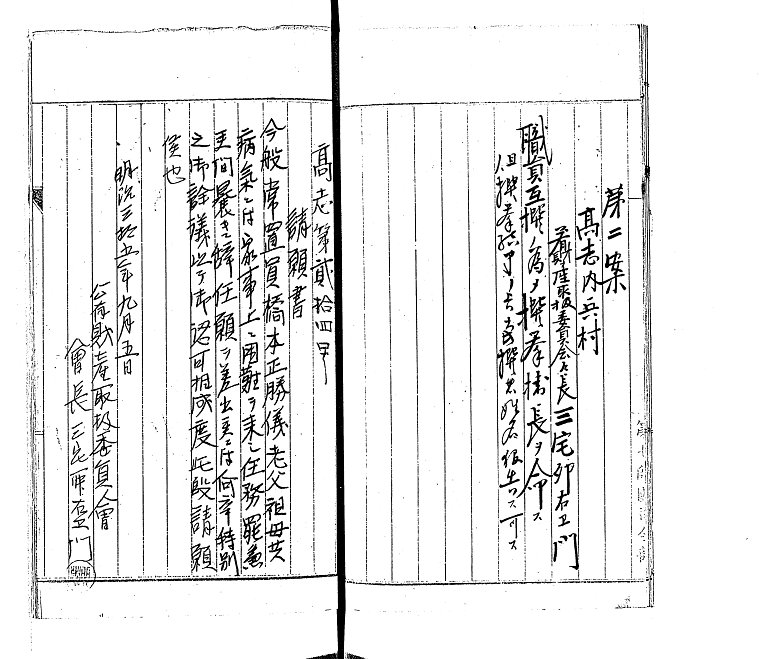 第二案
高志内兵村
財産取扱委員会々長 三宅卯右卫門
職員互撰ノ為メ撰挙掛長ヲ命ス
但撰挙終了ノ上当撰者姓名報告スヘシ
高志第貳拾四号
請願書
今般常置員橋本正勝儀老父祖母共
病氣ニ付家事上ニ困難ヲ来シ任務罷兼
候間最き辞任願ヲ差出候ニ付何卒特別
之御詮議以テ御認可相成度此段請願
候也
明治三拾五年九月五日
公有財産取扱委員會
會長三宅卯右衛門